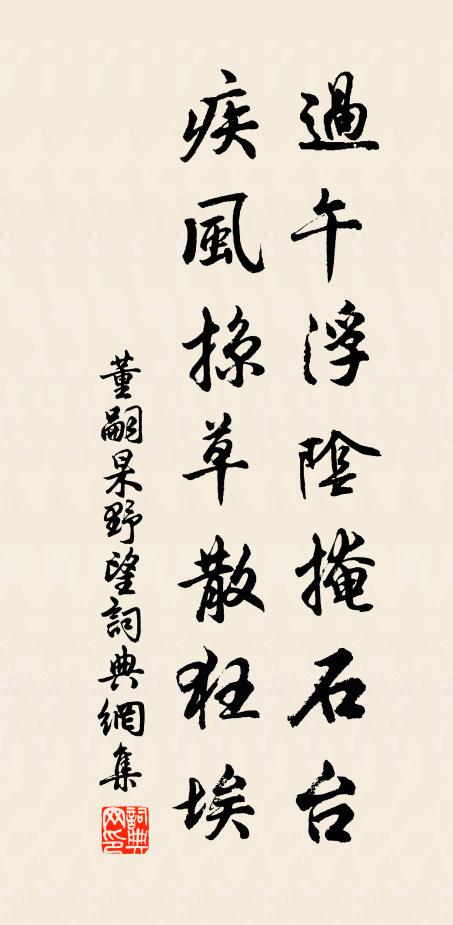 過午浮陰掩石台
疾風掠草散狂埃
董嗣杲野望詞典網集
詞典網印